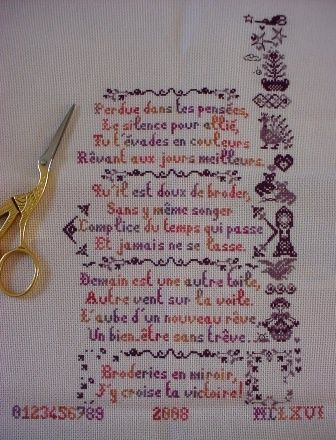 Perdue dans tes pensées,
Le silence pour allié,
Tu t'évades en couleurs
Rêvant aux jours meilleurs.
Qu'il est doux de broder,
Sans y même songer
Complice du temps qui passe
Et jamais ne se lasse.
Demain est une autre toile,
Autre vent sur ta voile.
L'aube d'un nouveau rêve
Un bien-être sans trêve...
Broderies en miroir,
J'y croise ta victoire!
0123456789 2008 MCLXVI